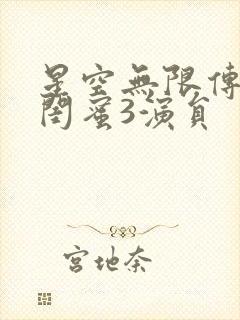 星空無限傳
閨蜜3演員
宮地奈